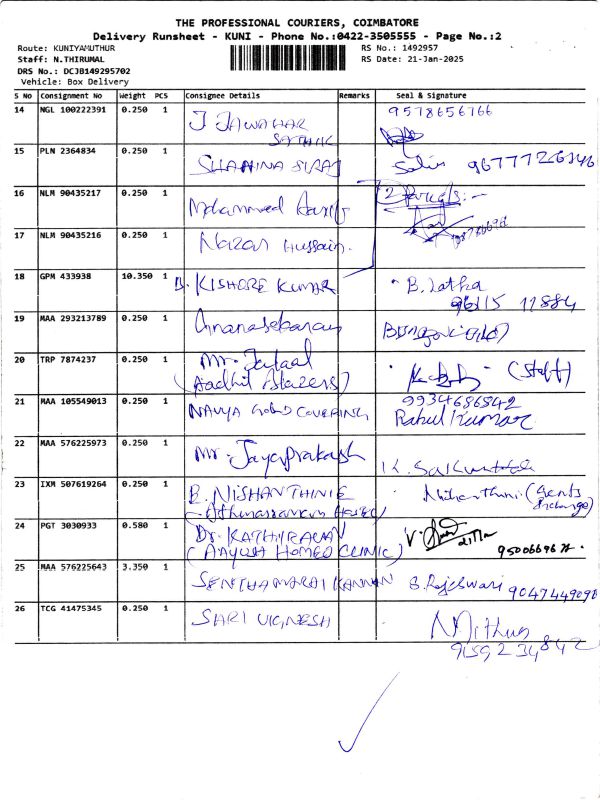 THE PROFESSIONAL COURIERS, COIMBATORE
Delivery Runsheet - KUNI - Phone No.:0422-3505555 - Page No.:2
Route: KUNIYAMUTHUR RS No.: 1492957
Staff: N.THIRUMAL RS Date: 21-Jan-2025
DRS No.: DCJB149295702
Vehicle: Box Delivery
S No Consignment No Weight PCS Consignee Details Remarks Seal & Signature
14 NGL 100222391 0.250 1 J JAWAHAR 9578656766
SATHIK
15 PLN 2364834 0.250 1 SHAHINA SIRAJ
16 NLM 90435217 0.250 1 Mohammed 2 Parcels:-
17 NLM 90435216 0.250 1 Nazar Hussain.
18 GPM 433938 10.350 1 B. KISHORE KUMAR B. Latha
96115 11884
19 MAA 293213789 0.250 1 Gnanasekaran
20 TRP 7874237 0.250 1 Mr. (Staff)
(Aadhil Blazers)
21 MAA 105549013 0.250 1 NAVYA Gold COVERING 9934686842
Rahul Kumar
22 MAA 576225973 0.250 1 Mr. Jayaprakash K.
23 IXM 507619264 0.250 1 B. NISHANTHINIE Nithanthini (Gents
24 PGT 3030933 0.580 1 Dr. KATHIRAVAN V.
(AAYUSH HOMEO CLINIC)
25 MAA 576225643 3.350 1 SENTHAMARAI KANNAN S. Rajeswari 9047449098
26 TCG 41475345 0.250 1 SARI VIGNESH Mithun
9159234842